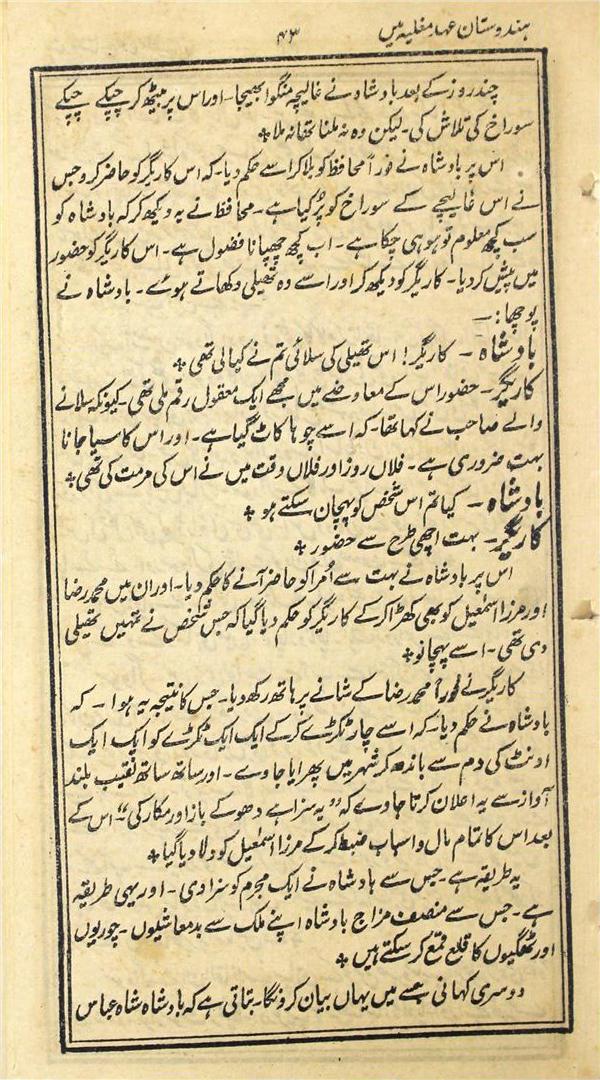 ہندوستان عہد مغلیہ میں
۴۳
چند روز کے بعد بادشاہ نے غالیچہ منگوا بھیجا۔ اور اس پر بیٹھ کر چپکے چپکے
سوراخ کی تلاش کی۔ لیکن وہ نہ ملنا تھا نہ ملا ٭
اس پر بادشاہ نے فوراً محافظ کو بلا کر اسے حکم دیا۔ کہ اس کاریگر کو حاضر کرو جس
نے اس غالیچے کے سوراخ کو پُر کیا ہے۔ محافظ نے یہ دیکھ کر کہ بادشاہ کو
سب کچھ معلوم تو ہو ہی چکا ہے۔ اب کچھ چھپانا فضول ہے۔ اس کاریگر کو حضور
میں پیش کر دیا۔ کاریگر کو دیکھ کر اور اسے وہ تھیلی دکھاتے ہوئے۔ بادشاہ نے
پوچھا:۔
بادشاہ۔ کاریگر! اس تھیلی کی سلائی تم نے کیا لی تھی ٭
کاریگر۔ حضور اس کے معاوضے میں مجھے ایک معقول رقم ملی تھی۔ کیونکہ سلانے
والے صاحب نے کہا تھا۔ کہ اسے چوہا کاٹ گیا ہے۔ اور اس کا سیا جانا
بہت ضروری ہے۔ فلاں روز اور فلاں وقت میں نے اس کی مرمت کی تھی ٭
بادشاہ۔ کیا تم اس شخص کو پہچان سکتے ہو ٭
کاریگر۔ بہت اچھی طرح سے حضور ٭
اس پر بادشاہ نے بہت سے اُمرا کو حاضر آنے کا حکم دیا۔ اور ان میں محمد رضا
اور مرزا اسمٰعیل کو بھی کھڑا کر کے کاریگر کو حکم دیا گیا کہ جس شخص نے تمہیں تھیلی
دی تھی۔ اسے پہچانو ٭
کاریگر نے فوراً محمد رضا کے شانے پر ہاتھ رکھ دیا۔ جس کا نتیجہ یہ ہوا۔ کہ
بادشاہ نے حکم دیا۔ کہ اسے چار ٹکڑے کر کے ایک ایک ٹکڑے کو ایک ایک
اونٹ کی دم سے باندھ کر شہر میں پھرایا جاوے۔ اور ساتھ ساتھ نقیب بلند
آواز سے یہ اعلان کرتا جاوے کہ "یہ سزا ہے دھوکے باز اور مکار کی" اس کے
بعد اس کا تمام مال و اسباب ضبط کر کے مرزا اسمٰعیل کو دلا دیا گیا ٭
یہ طریقہ ہے۔ جس سے بادشاہ نے ایک مجرم کو سزا دی۔ اور یہی طریقہ
ہے۔ جس سے منصف مزاج بادشاہ اپنے ملک سے بدمعاشیوں۔ چوریوں
اور ٹھگیوں کا قلع قمع کر سکتے ہیں ٭
دوسری کہانی جسے میں یہاں بیان کرونگا۔ بتاتی ہے کہ بادشاہ شاہ عباس